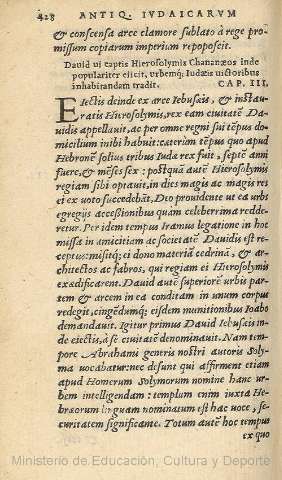 428 ANTIQ. IVDAICARVM
& conscensa arce clamore sublato à rege pro-
missum copiarum imperium repoposcit.
Dauid ui captis Hierosolymis Chananæos inde
populariter eiicit, urbemq; Iudæis uictoribus
inhabitandam tradit. CAP. III.
EIectis deinde ex arce Iebusæis, & instau-
ratis Hierosolymis, rex eam ciuitatē Da-
uidis appellauit, ac per omne regni sui tēpus do-
micilium inibi habuit: cæterùm tēpus quo apud
Hebronē solius tribus Iuda rex fuit, septē anni
fuere, & mēses sex: postquā autē Hierosolymis
regiam sibi optauit, in dies magis ac magis res
ei ex uoto succedebāt, Deo prouidente ut ea urbs
egregijs accessionibus quàm celeberrima redde-
retur. Per idem tempus Iramus legatione in hoc
missa in amicitiam ac societatē Dauidis est re-
ceptus: misitq; ei dono materiā cedrinā, & ar-
chitectos ac fabros, qui regiam ei Hierosolymis
exædificarent. Dauid autē superiorē urbis par-
tem & arcem in ea conditam in unum corpus
redegit, cingēdumq; eisdem munitionibus Ioabo
demandauit. Igitur primus Dauid Iebusæis in-
de eiectis, à se ciuitatē denominauit. Nam tem-
pore Abrahami generis nostri autoris Soly-
ma uocabatur: nec desunt qui affirment etiam
apud Homerum Solymorum nomine hanc ur-
bem intelligendam: templum enim iuxta He-
bræorum linguam nominatum est hac uoce, se-
curitatem significante. Totum autē hoc tempus
ex quo
Ministerio de Educación, Cultura y Deporte